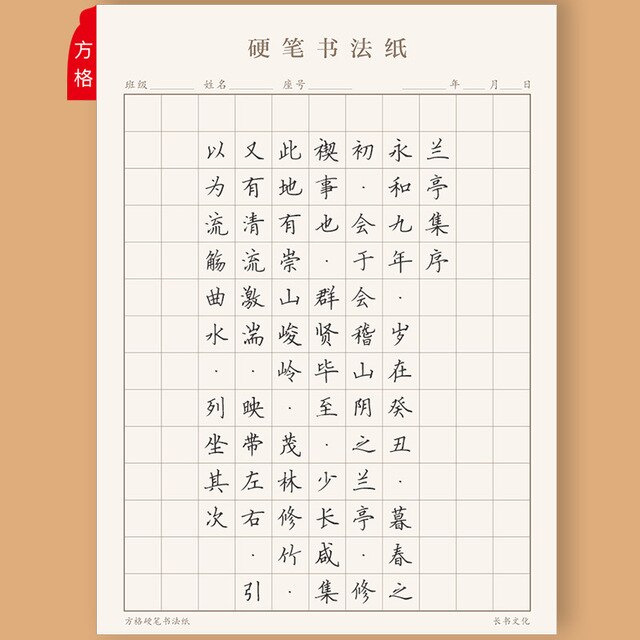 方格
硬笔书法纸
班级________ 姓名________ 座号________ ________年____月____日
兰亭集序
永和九年·岁在癸丑·暮春之
初·会于会稽山阴之兰亭·修
禊事也·群贤毕至·少长咸集
此地有崇山峻岭·茂林修竹·
又有清流激湍·映带左右·引
以为流觞曲水·列坐其次
方格硬笔书法纸
长书文化